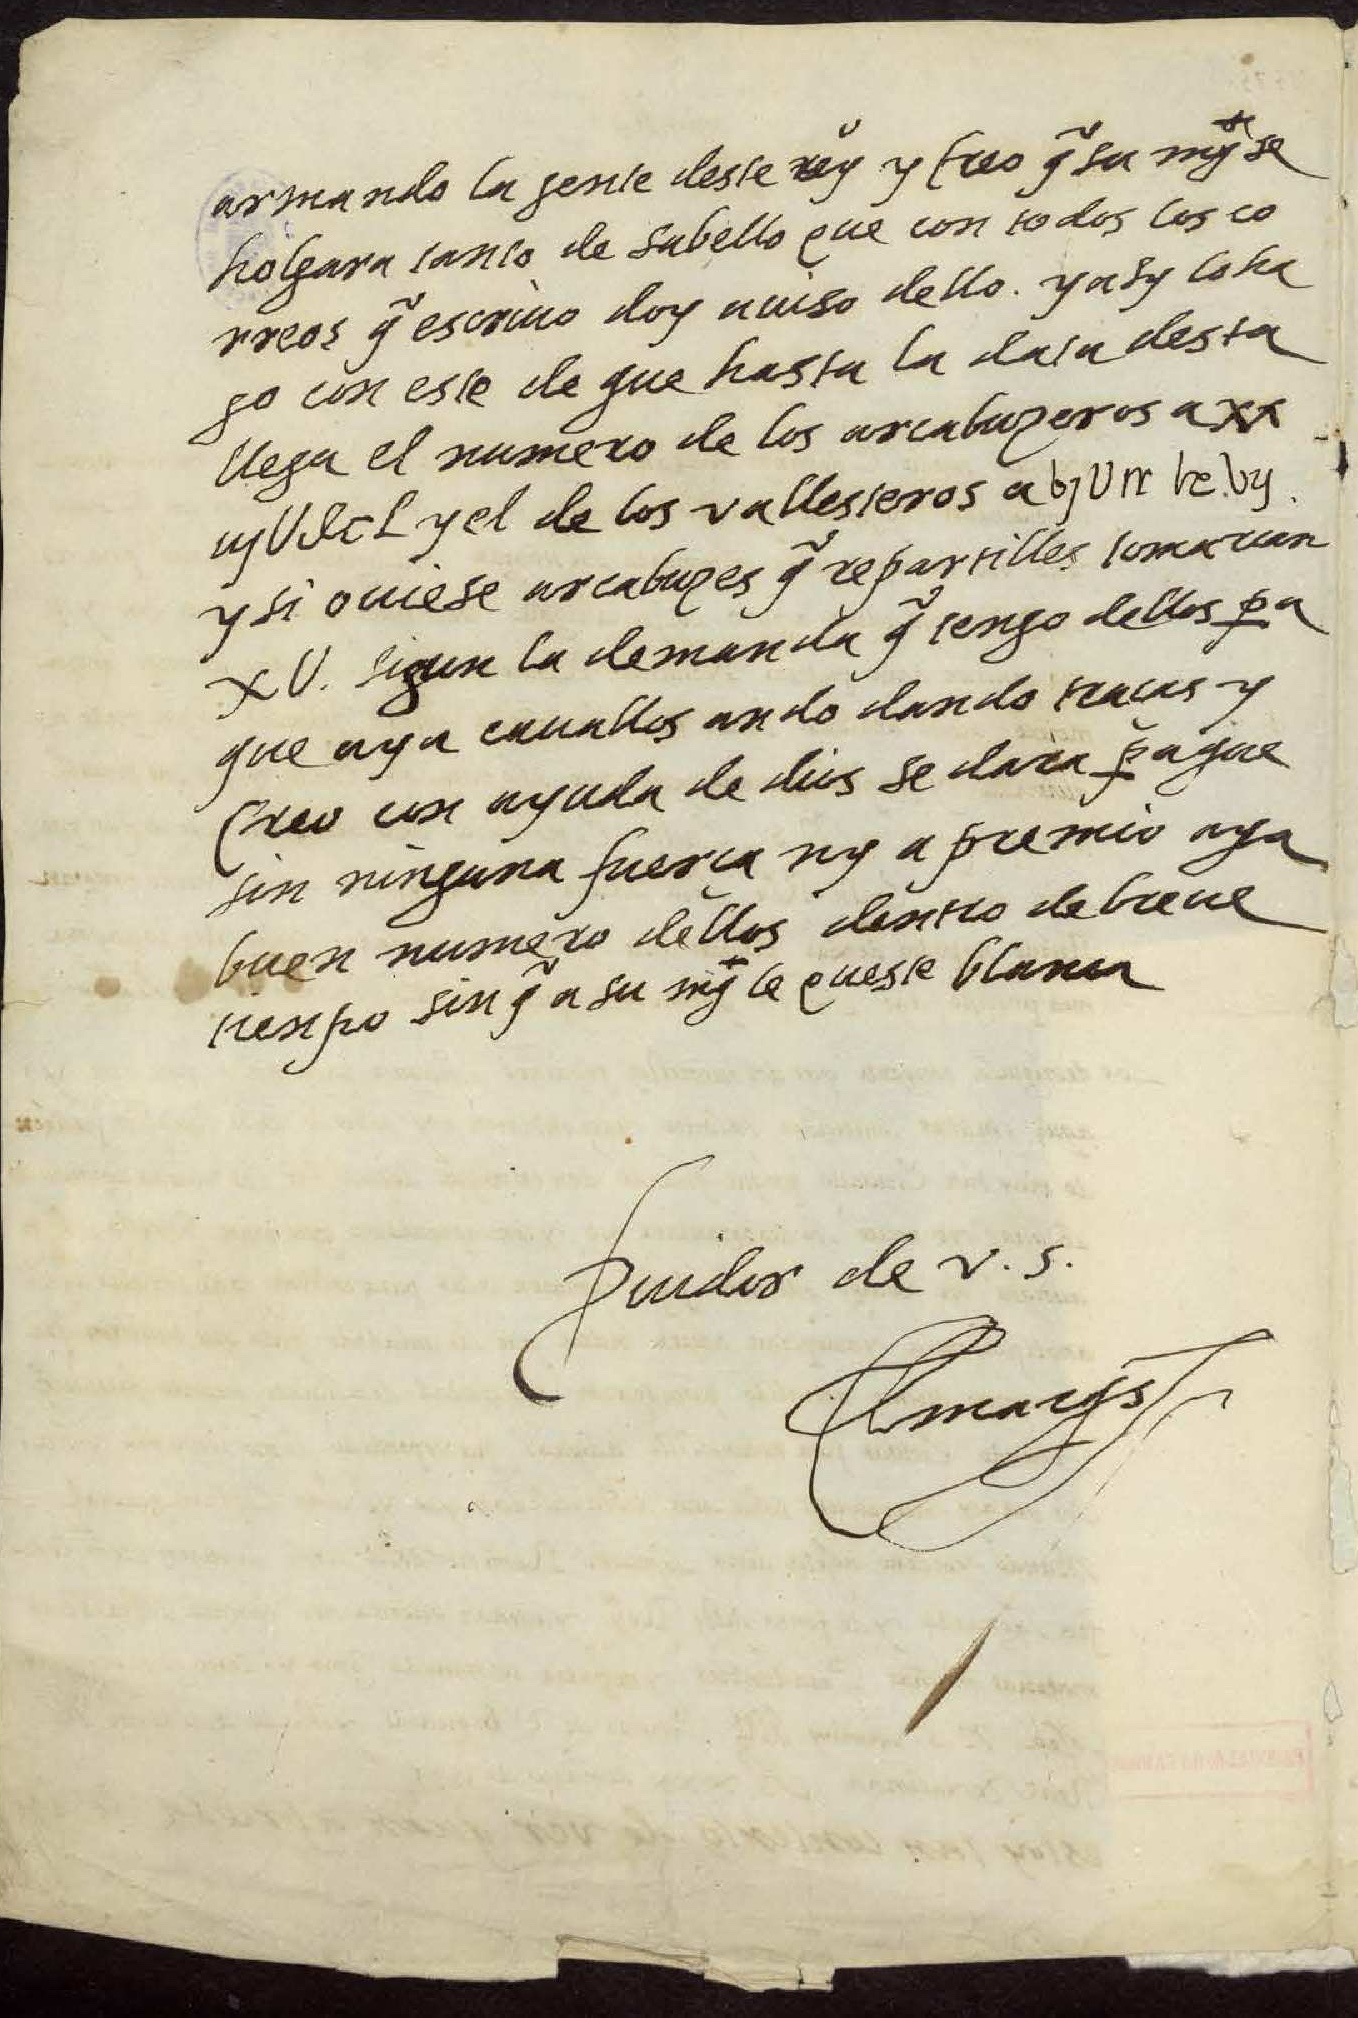 armando la gente deste reyº y creo q̃ su mgt se
holgara tanto de sabello que con todos los co
rreos q̃ escriuo doy auiso dello. y asy lo ha
go con este de que hasta la data desta
llega el numero de los arcabuzeros a xx
y el de los vallesteros a
y si ouiese arcabuzes q̃ repartilles tomarian
xU. sigun la demanda q̃ tengo dellos pa
que aya cauallos ando dando tracas y
creo con ayuda de dios se dara pa que
sin ninguna fuerca ny apremio aya
buen numero dellos dentro de breue
tienpo sin q̃ a su mgt le queste blanca
seruidor de v. s.
El marqs